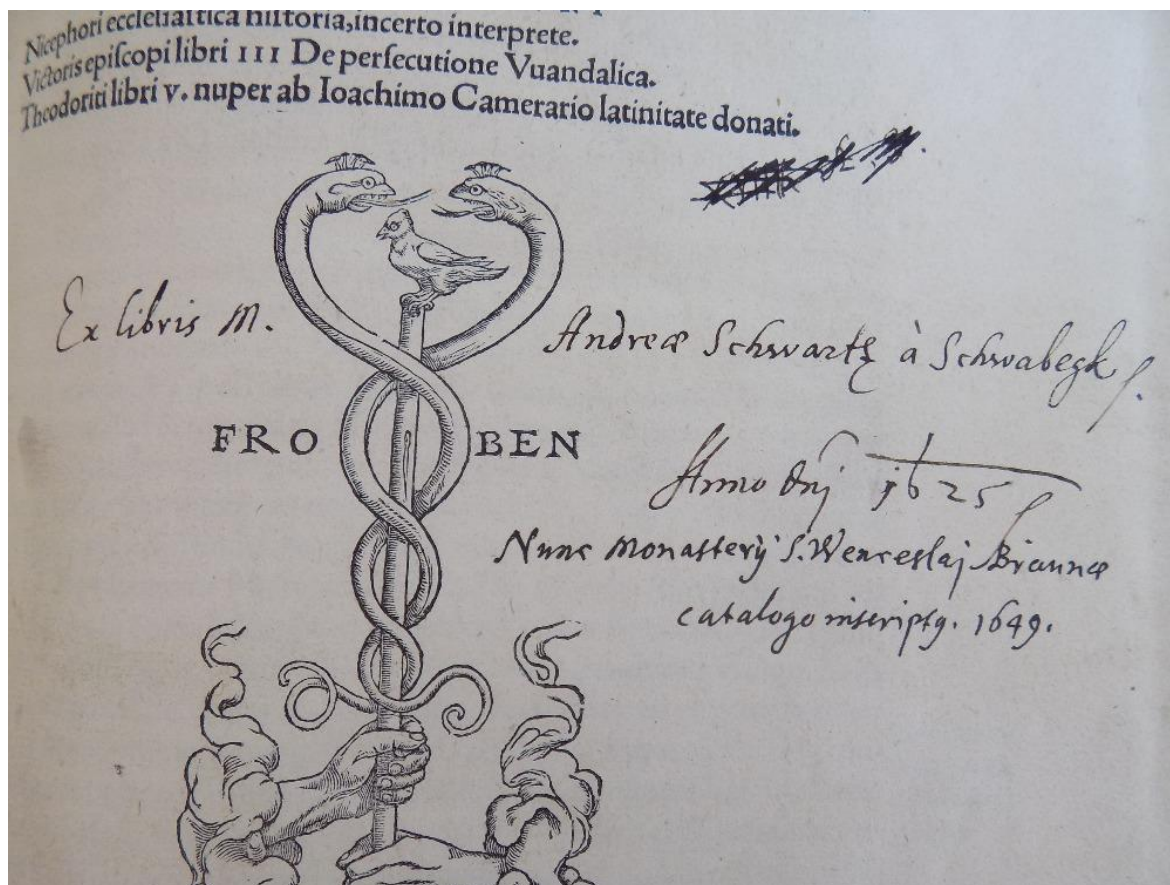 Nicephori eccleſiaſtica hiſtoria, incerto interprete.
Victoris epiſcopi libri III De perſecutione Vuandalica.
Theodoriti libri v. nuper ab Ioachimo Camerario latinitate donati.
Ex libris M. Andreæ Schwartz à Schwabegk
FRO BEN
Anno dñj 1625
Nunc Monasterij S. Wenceslaj Braunæ
catalogo inscriptq. 1649.